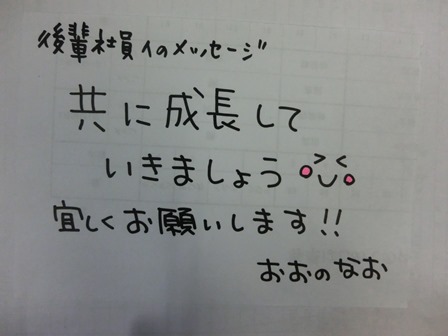 後輩社員へのメッセージ
共に成長して
いきましょう
宜しくお願いします!!
おおのなお